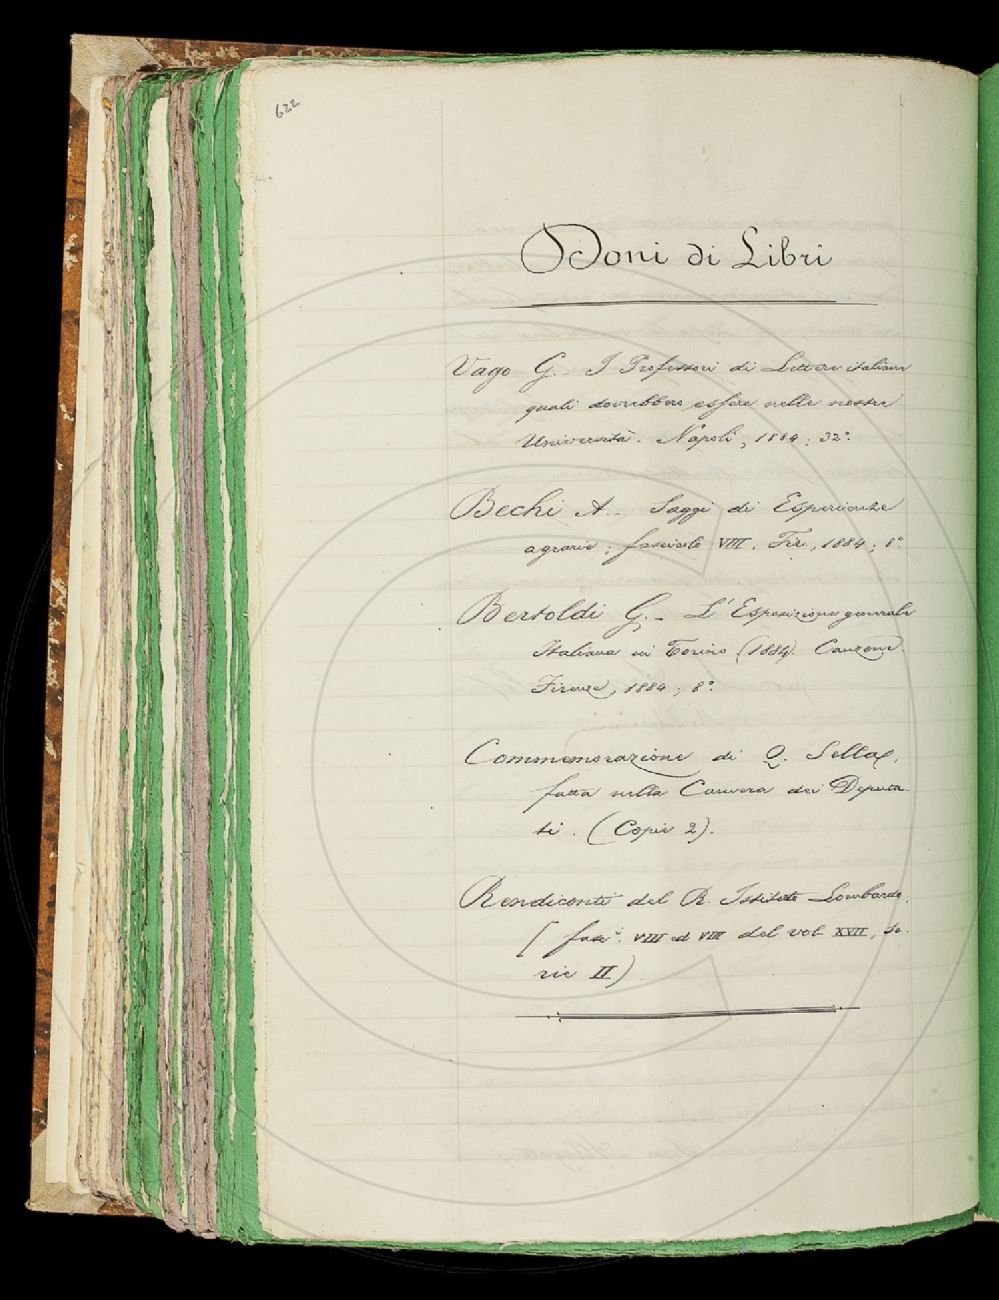 622
Doni di Libri
Vago G. - I Professori di Lettere italiane
quali dovrebbero essere nelle nostre
Università. Napoli, 1884; 32°.
Bechi A. - Saggi di Esperienze
agrarie; fascicolo VIII. Fir., 1884; 8°.
Bertoldi G. - L'Esposizione generale
Italiana in Torino (1884). Canzone.
Firenze, 1884; 8°.
Commemorazione di Q. Sella,
fatta nella Camera dei Deputa-
ti. (Copie 2).
Rendiconti del R. Istituto Lombardo.
[fasc. VIII ed VIII del vol. XVII, se-
rie II)